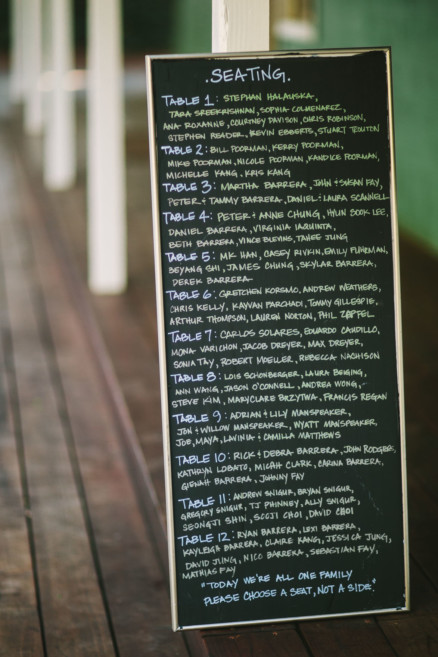 .SEATING.
TABLE 1: STEPHAN HALAUSKA,
TARA SREEKRISHNAN, SOPHIA COLMENAREZ,
ANA ROXANNE, COURTNEY DAVISON, CHRIS ROBINSON,
STEPHEN READER, BREVIN EBBERTS, STUART TOUTON
TABLE 2: BILL POORMAN, KERRY POORMAN,
MIKE POORMAN, NICOLE POORMAN, KANDICE POORMAN,
MICHELLE KANG, KRIS KANG
TABLE 3: MARTHA BARRERA, JOHN + SUSAN FAY,
PETER + TAMMY BARRERA, DANIEL + LAURA SCANNELL
TABLE 4: PETER + ANNE CHUNG, HYUN SOOK LEE,
DANIEL BARRERA, VIRGINIA IAQUINTA,
BETH BARRERA, VINCE BLEVINS, TAHEE JUNG
TABLE 5: MK HAN, CASEY RIVKIN, EMILY FUHRMAN,
BEYANG SHI, JAMES CHUNG, SKYLAR BARRERA,
DEREK BARRERA
TABLE 6: GRETCHEN KORSMO, ANDREW WEATHERS,
CHRIS KELLY, KAYVAN FARCHADI, TOMMY GILLESPIE,
ARTHUR THOMPSON, LAUREN NORTON, PHIL ZAPFEL
TABLE 7: CARLOS SOLARES, EDUARDO CAUDILLO,
MONA VARICHON, JACOB DREYER, MAX DREYER,
SONIA TAY, ROBERT MOELLER, REBECCA NACHISON
TABLE 8: LOIS SCHONBERGER, LAURA BEIGING,
ANN WANG, JASON O'CONNELL, ANDREA WONG,
STEVE KIM, MARYCLARE BRZYTWA, FRANCIS REGAN
TABLE 9: ADRIAN + LILY MANSPEAKER,
JON + WILLOW MANSPEAKER, WYATT MANSPEAKER,
JOE, MAYA, LAVINIA + CAMILLA MATTHEWS
TABLE 10: RICK + DEBRA BARRERA, JOHN RODGERS,
KATHRYN LOBATO, MICAH CLARK, CARINA BARRERA,
BARRERA, JOHNNY FAY
TABLE 11: ANDREW SNIGUR, BRYAN SNIGUR,
GREGORY SNIGUR, TJ PHINNEY, ALLY SNIGUR,
SEONGJI SHIN, SOOJI CHOI, DAVID CHOI
TABLE 12: RYAN BARRERA, LEXI BARRERA,
KAYLEIGH BARRERA, CLAIRE KANG, JESSICA JUNG,
DAVID JUNG, NICO BARRERA, SEBASTIAN FAY,
MATHIAS FAY
"TODAY WE'RE ALL ONE FAMILY
PLEASE CHOOSE A SEAT, NOT A SIDE."